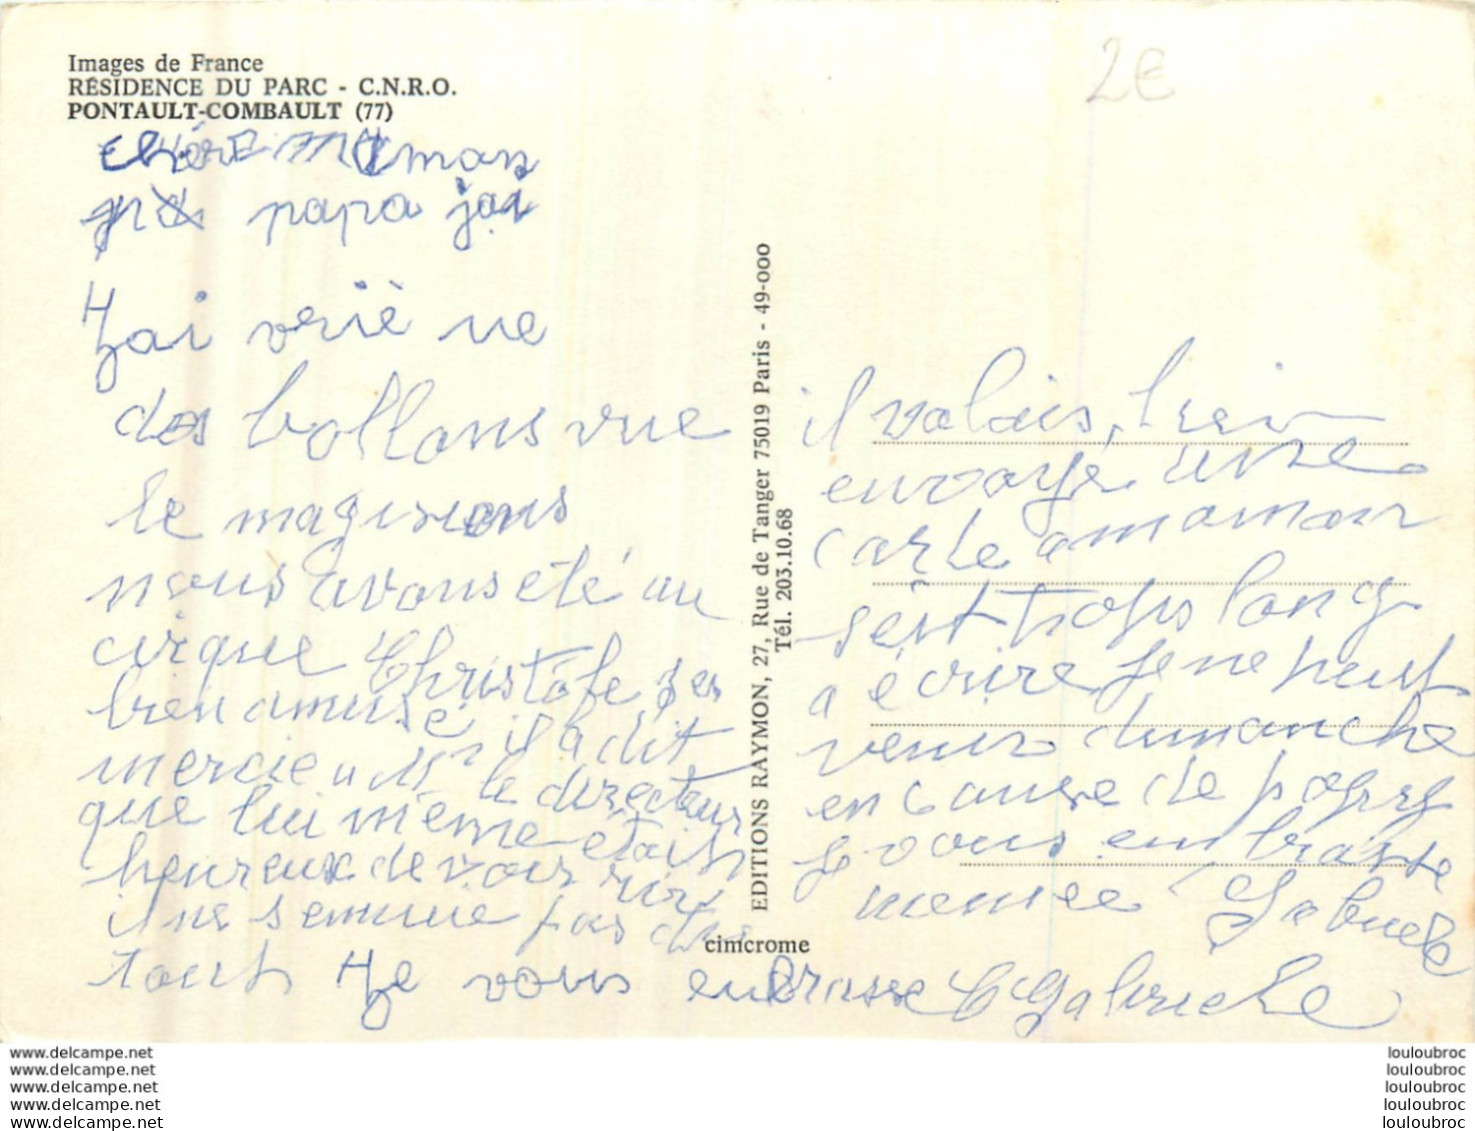 Images de France
RÉSIDENCE DU PARC - C.N.R.O.
PONTAULT-COMBAULT (77)
2€
chère maman
papa jai
Jai
des bollons vue
le magisiens
nous avons été au
cirque Christofe ses
bien amuse il a dit
mercie a Mr le directeur
que lui même était
heureux de voir rire
il ne semnuie pas du
tout Je vous embrasse Gabrielle
EDITIONS RAYMON, 27, Rue de Tanger 75019 Paris - 49-000
Tél. 203.10.68
cimcrome
il valais bien
envoyé une
carte a maman
sêst trops long
a écrire je ne peut
venir dimanche
en cause de papy
Je vous embrasse
memee Gabriele
www.delcampe.net
www.delcampe.net
www.delcampe.net
www.delcampe.net
www.delcampe.net
louloubroc
louloubroc
louloubroc
louloubroc
louloubroc